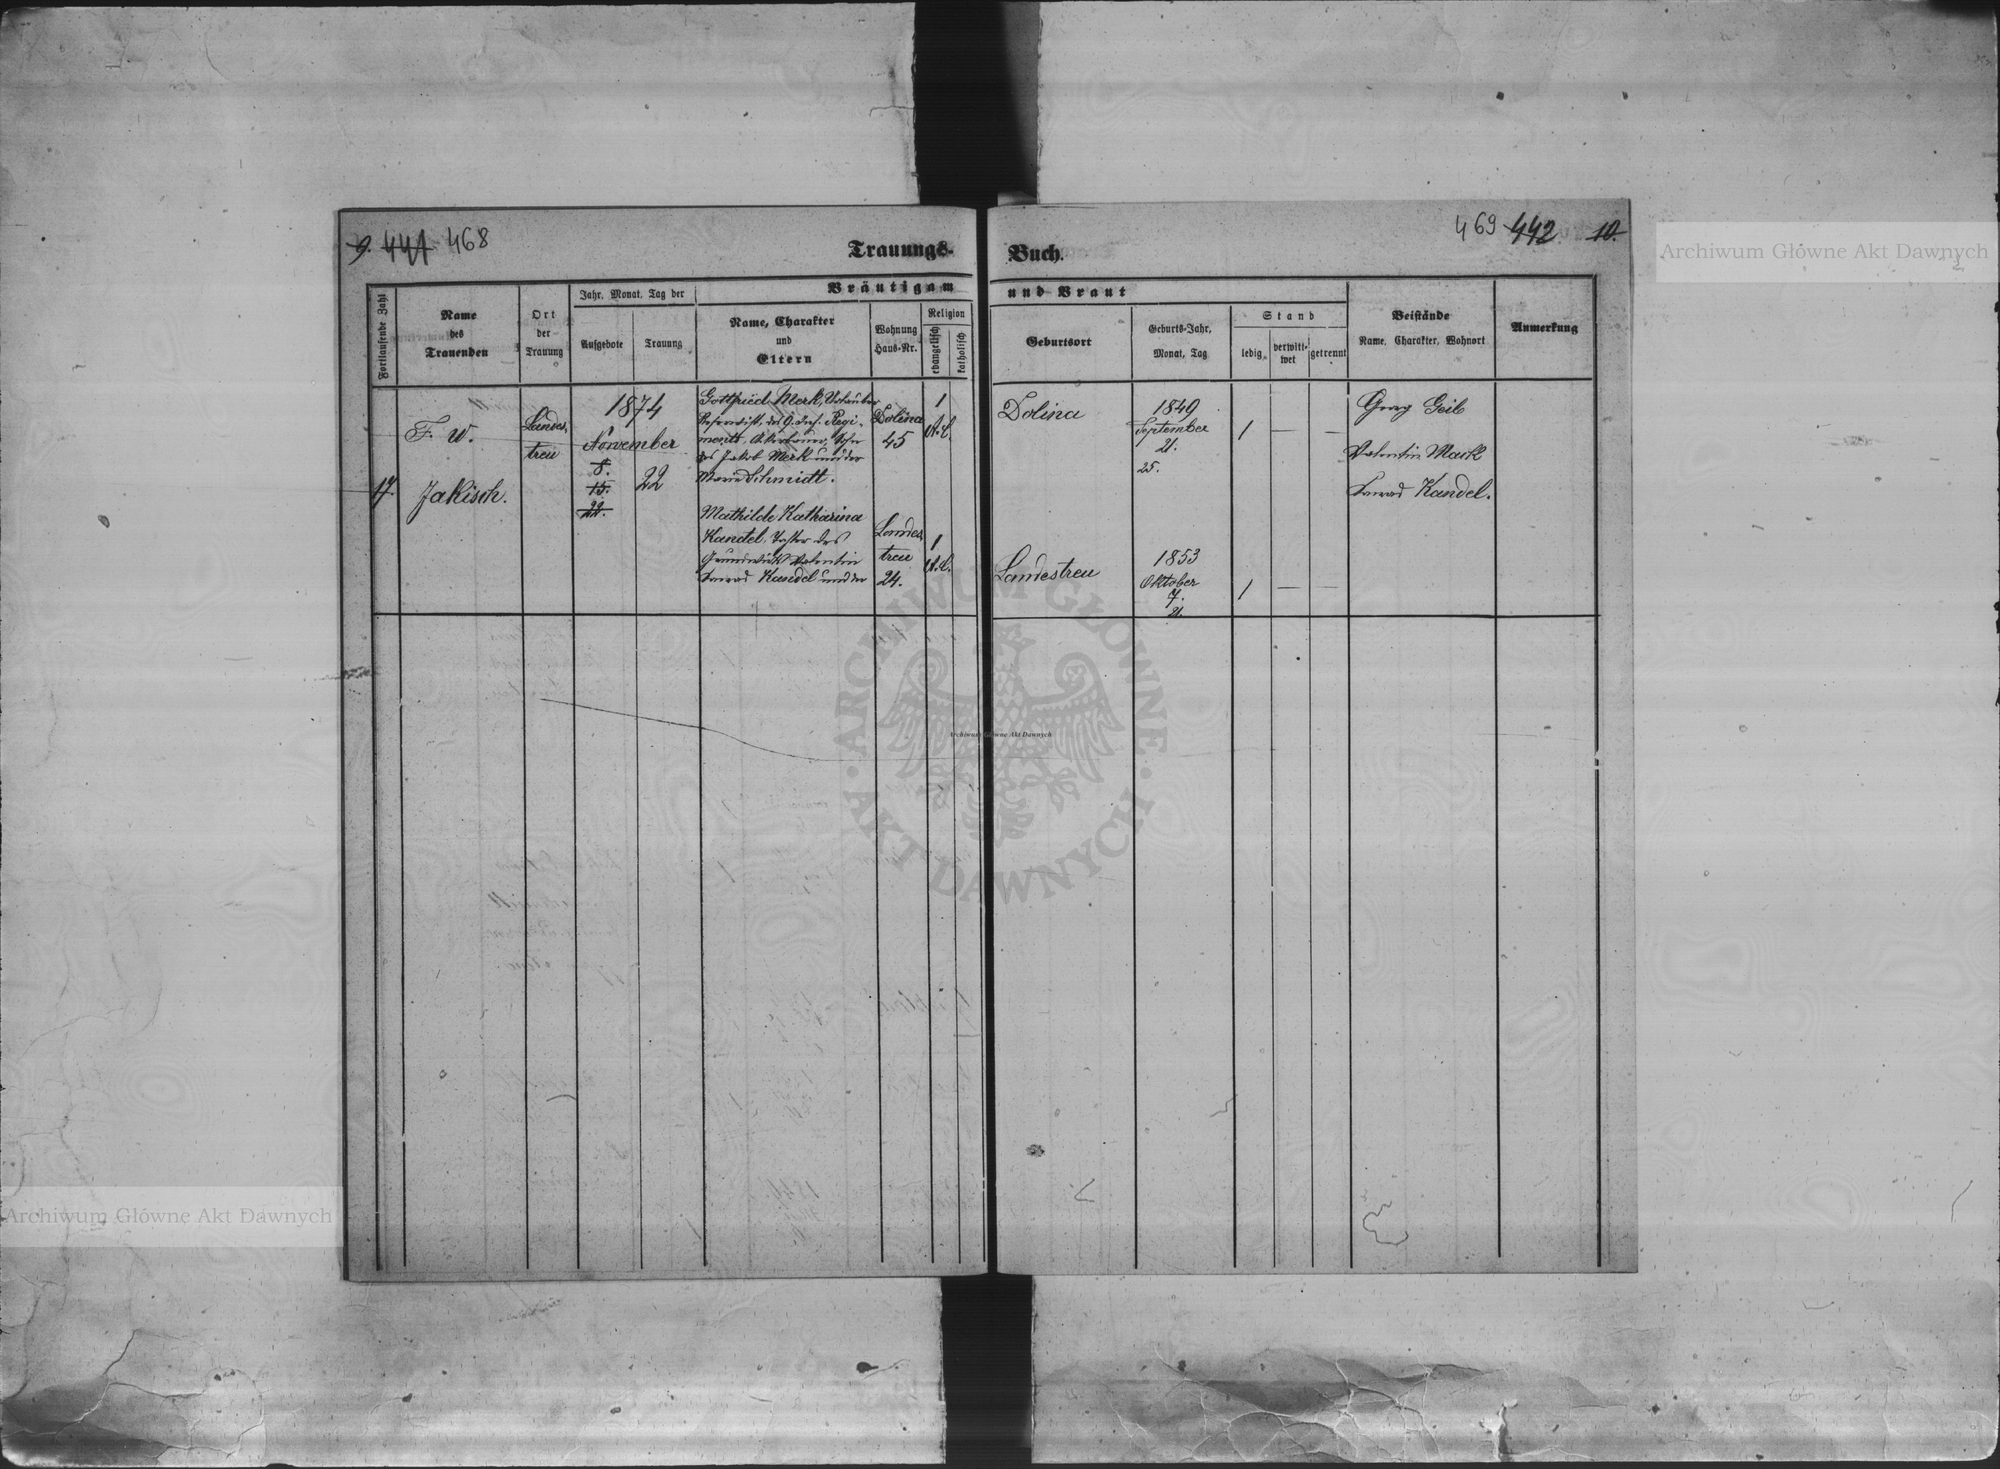 9. 441 468
Trauungs-
Bräutigam
Fortlaufende Zahl
Name
des
Trauenden
Ort
der
Trauung
Jahr, Monat, Tag der
Aufgebote
Trauung
Name, Charakter
und
Eltern
Wohnung
Haus-Nr.
Religion
evangelisch
katholisch
17.
F. W.
Jakisch.
Landes,
treu
1874
November
8.
15.
22.
22
Gottfried Merk, Urlauber
Reservist, des 9. Inf. Regi-
ments, Ackerbauer, Sohn
des Jakob Merk und der
Maria Schmidt.
Dolina
45
1
A.C.
Mathilde Katharina
Kandel. Tochter des
Grundwirth Valentin
Konrad Kandel und der
Landes,
treu
24.
1
A.C.
469 442 10.
Buch.
und Braut
Geburtsort
Geburts-Jahr,
Monat, Tag
Stand
ledig
verwitt-
wet
getrennt
Beistände
Name, Charakter, Wohnort
Anmerkung
Dolina
1849
September
21.
25.
1 — —
Georg Geib
Valentin Mark
Konrad Kandel.
Landestreu
1853
Oktober
7.
21.
1 — —
Archiwum Główne Akt Dawnych
ARCHIWUM GŁÓWNE
AKT DAWNYCH
Archiwum Główne Akt Dawnych
Archiwum Główne Akt Dawnych